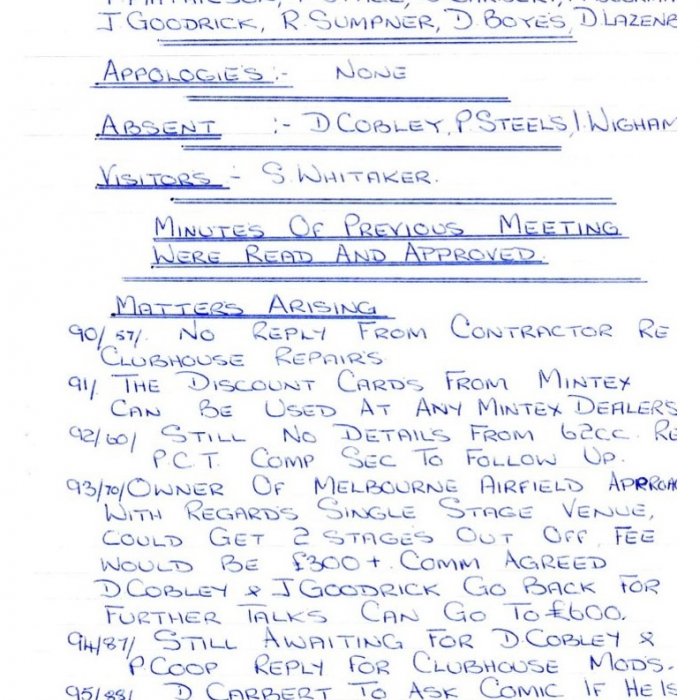 J. GOODRICK, R. SUMPNER, D. BOYES, D LAZENB
APPOLOGIE'S :- NONE
ABSENT :- D COBLEY, P. STEELS, I. WIGHAM
VISITORS - S. WHITAKER.
MINUTES OF PREVIOUS MEETING
WERE READ AND APPROVED.
MATTER'S ARISING
90/57/. NO REPLY FROM CONTRACTOR RE
CLUBHOUSE REPAIR'S
91/. THE DISCOUNT CARD'S FROM MINTEX
CAN BE USED AT ANY MINTEX DEALERS
92/60/ STILL NO DETAILS FROM 62CC. RE
P.C.T. COMP SEC TO FOLLOW UP.
93/70/ OWNER OF MELBOURNE AIRFIELD APRROA
WITH REGARD'S SINGLE STAGE VENUE,
COULD GET 2 STAGES OUT OFF. FEE
WOULD BE £300+. COMM AGREED
D COBLEY & J GOODRICK GO BACK FOR
FURTHER TALKS CAN GO TO £600.
94/87/ STILL AWAITING FOR D COBLEY &
P COOP REPLY FOR CLUBHOUSE MOD'S.
95/88/ D CARBERT TO ASK COMIC IF HE IS